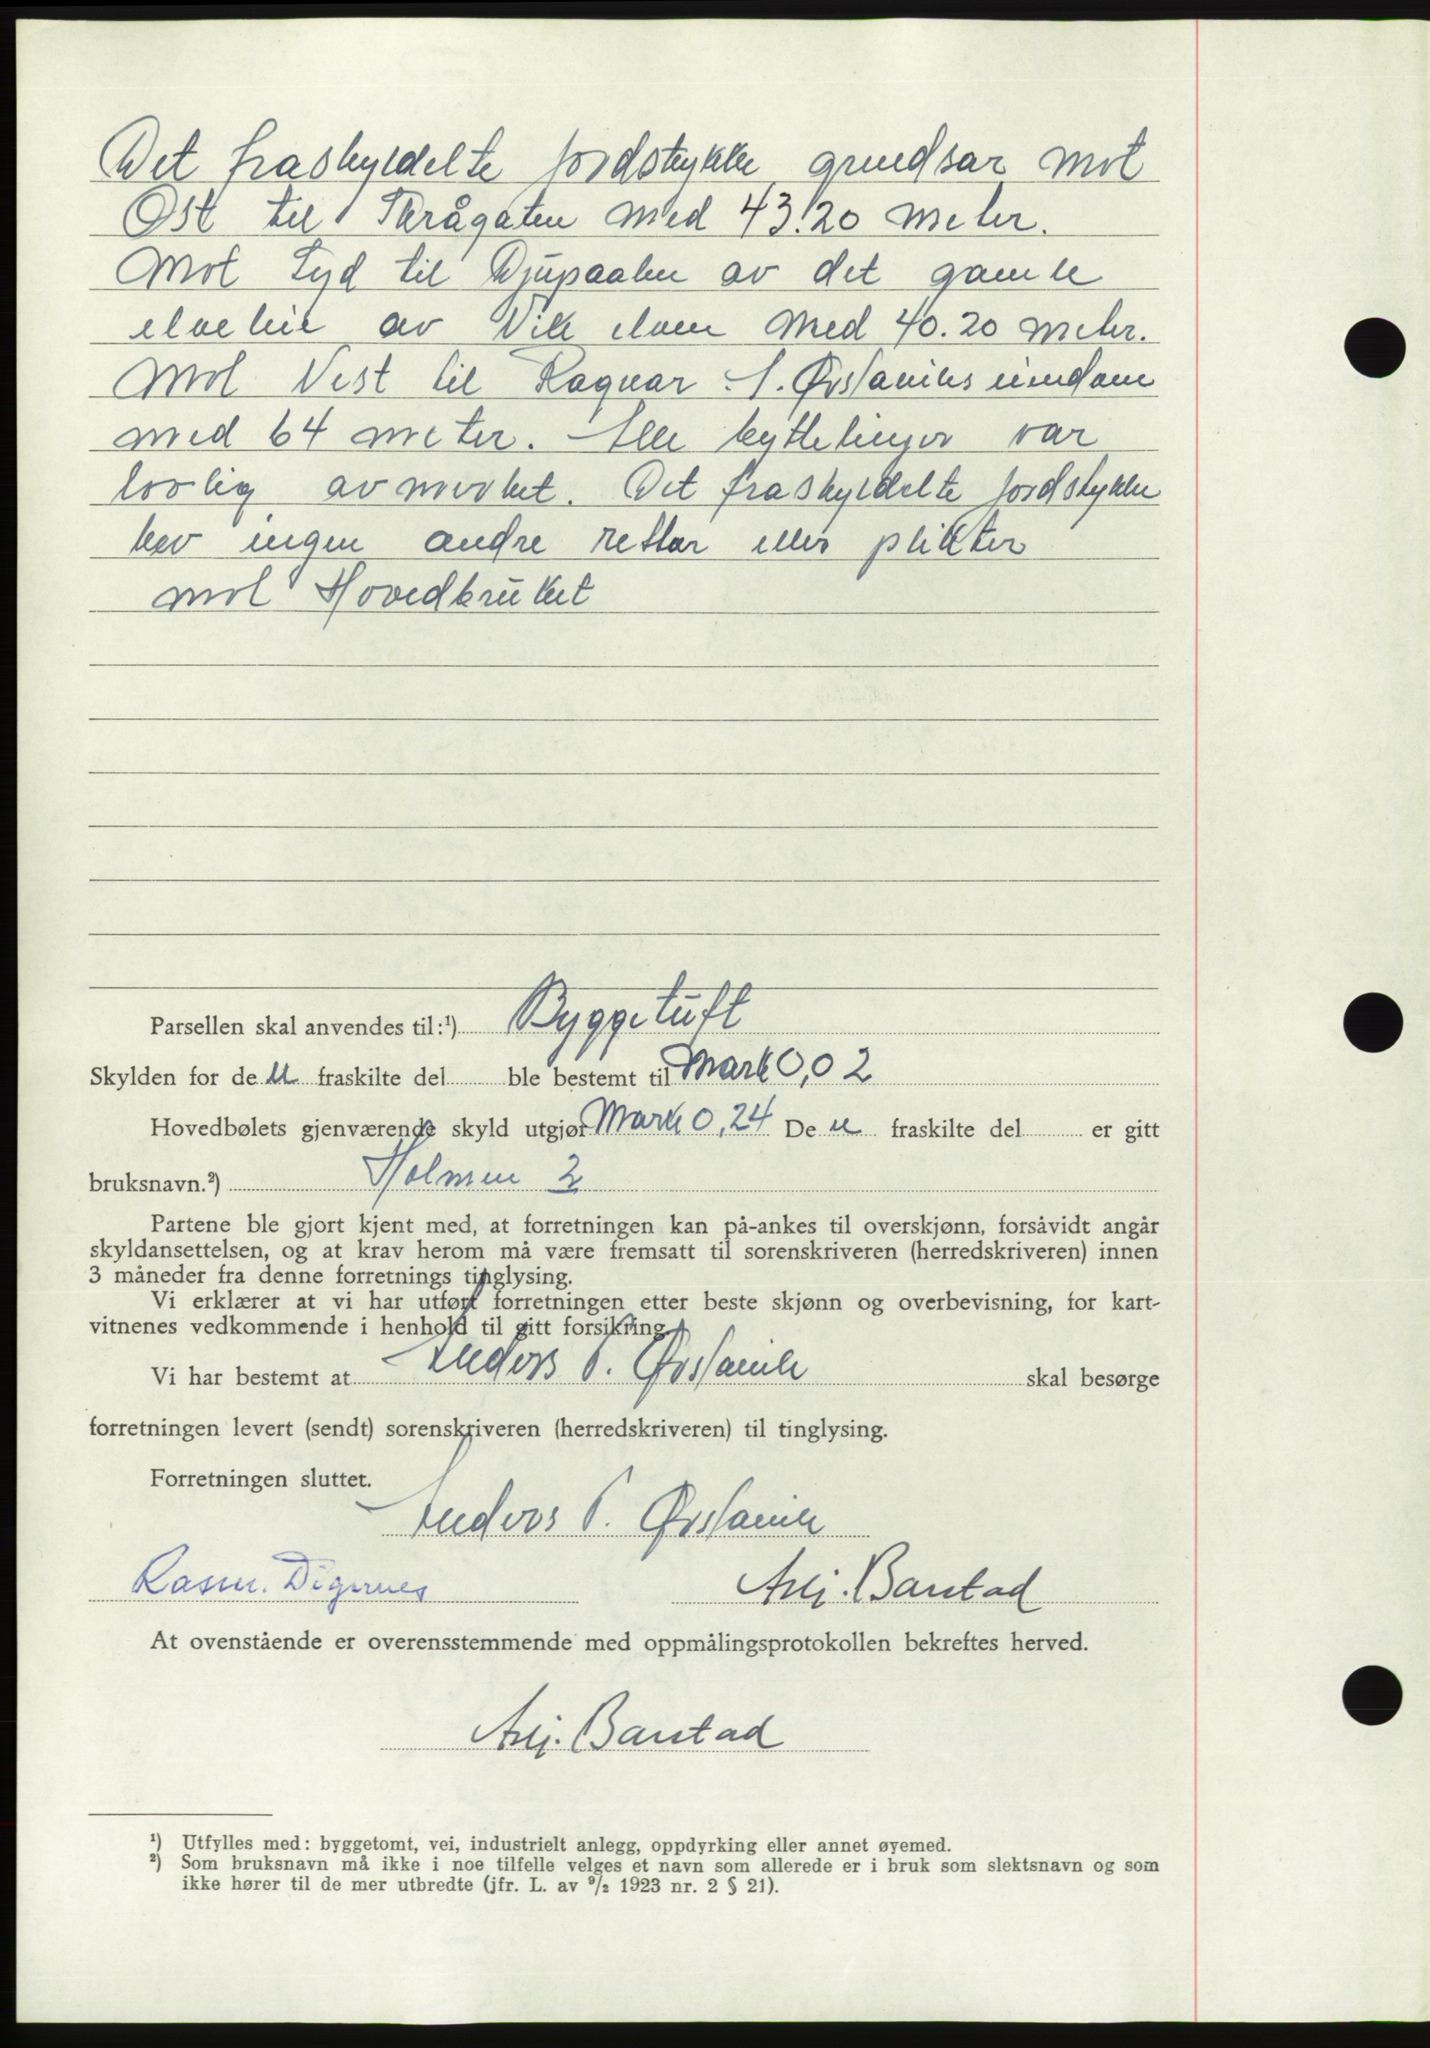 Det fraskyldelte jordstykke grendsar mot
Øst til Thrågaten med 43.20 meter.
Mot Syd til Djupaalen av det gamle
elveleie av Vik elven med 40.20 meter.
Mot Vest til Ragnar A. Ørstaviks eiendom
med 64 meter. Alle byttelinger var
lovlig avmerket. Det fraskyldelte jordstykke
hev ingen andre rettar eller plikter
mot Hovedbruket
Parsellen skal anvendes til:¹) Byggetuft
Skylden for den fraskilte del ble bestemt til Mark 0,02
Hovedbølets gjenværende skyld utgjør Mark 0,24 Den fraskilte del er gitt
bruksnavn.²) Holmen 2
Partene ble gjort kjent med, at forretningen kan på-ankes til overskjønn, forsåvidt angår
skyldansettelsen, og at krav herom må være fremsatt til sorenskriveren (herredskriveren) innen
3 måneder fra denne forretnings tinglysing.
Vi erklærer at vi har utført forretningen etter beste skjønn og overbevisning, for kart-
vitnenes vedkommende i henhold til gitt forsikring.
Vi har bestemt at Anders P. Ørstavik skal besørge
forretningen levert (sendt) sorenskriveren (herredskriveren) til tinglysing.
Forretningen sluttet.
Anders P. Ørstavik
Rasm. Digernes Asbj. Barstad
At ovenstående er overensstemmende med oppmålingsprotokollen bekreftes herved.
Asbj. Barstad
¹) Utfylles med: byggetomt, vei, industrielt anlegg, oppdyrking eller annet øyemed.
²) Som bruksnavn må ikke i noe tilfelle velges et navn som allerede er i bruk som slektsnavn og som
ikke hører til de mer utbredte (jfr. L. av ⁹/₂ 1923 nr. 2 § 21).